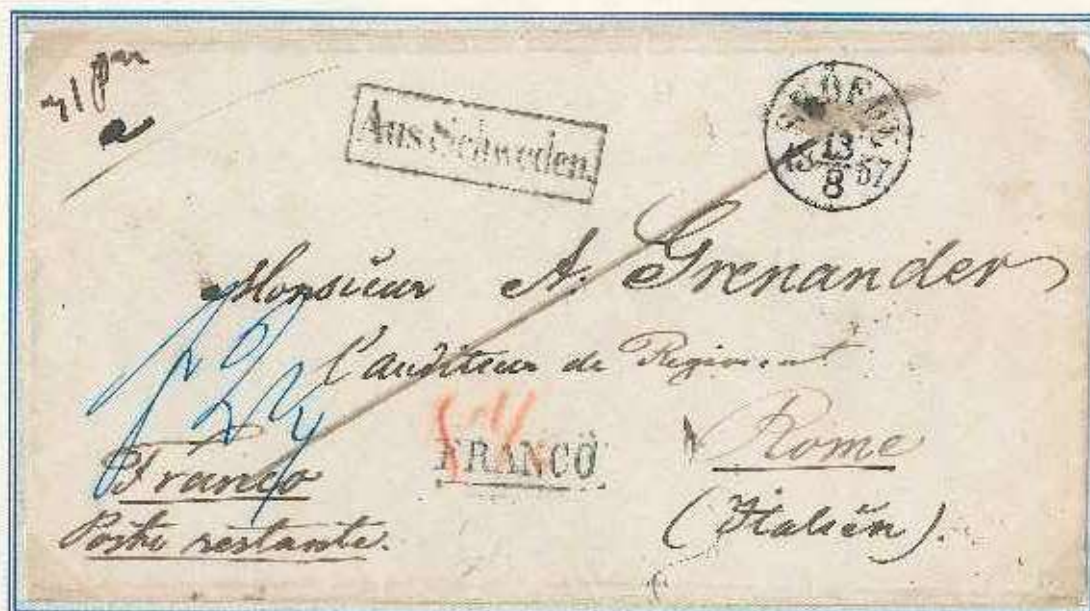 Aus Schweden.
13
8
Monsieur A. Grenander
l'auditeur de Regiment
Rome
(Italien).
FRANCO
Franco
Poste restante.